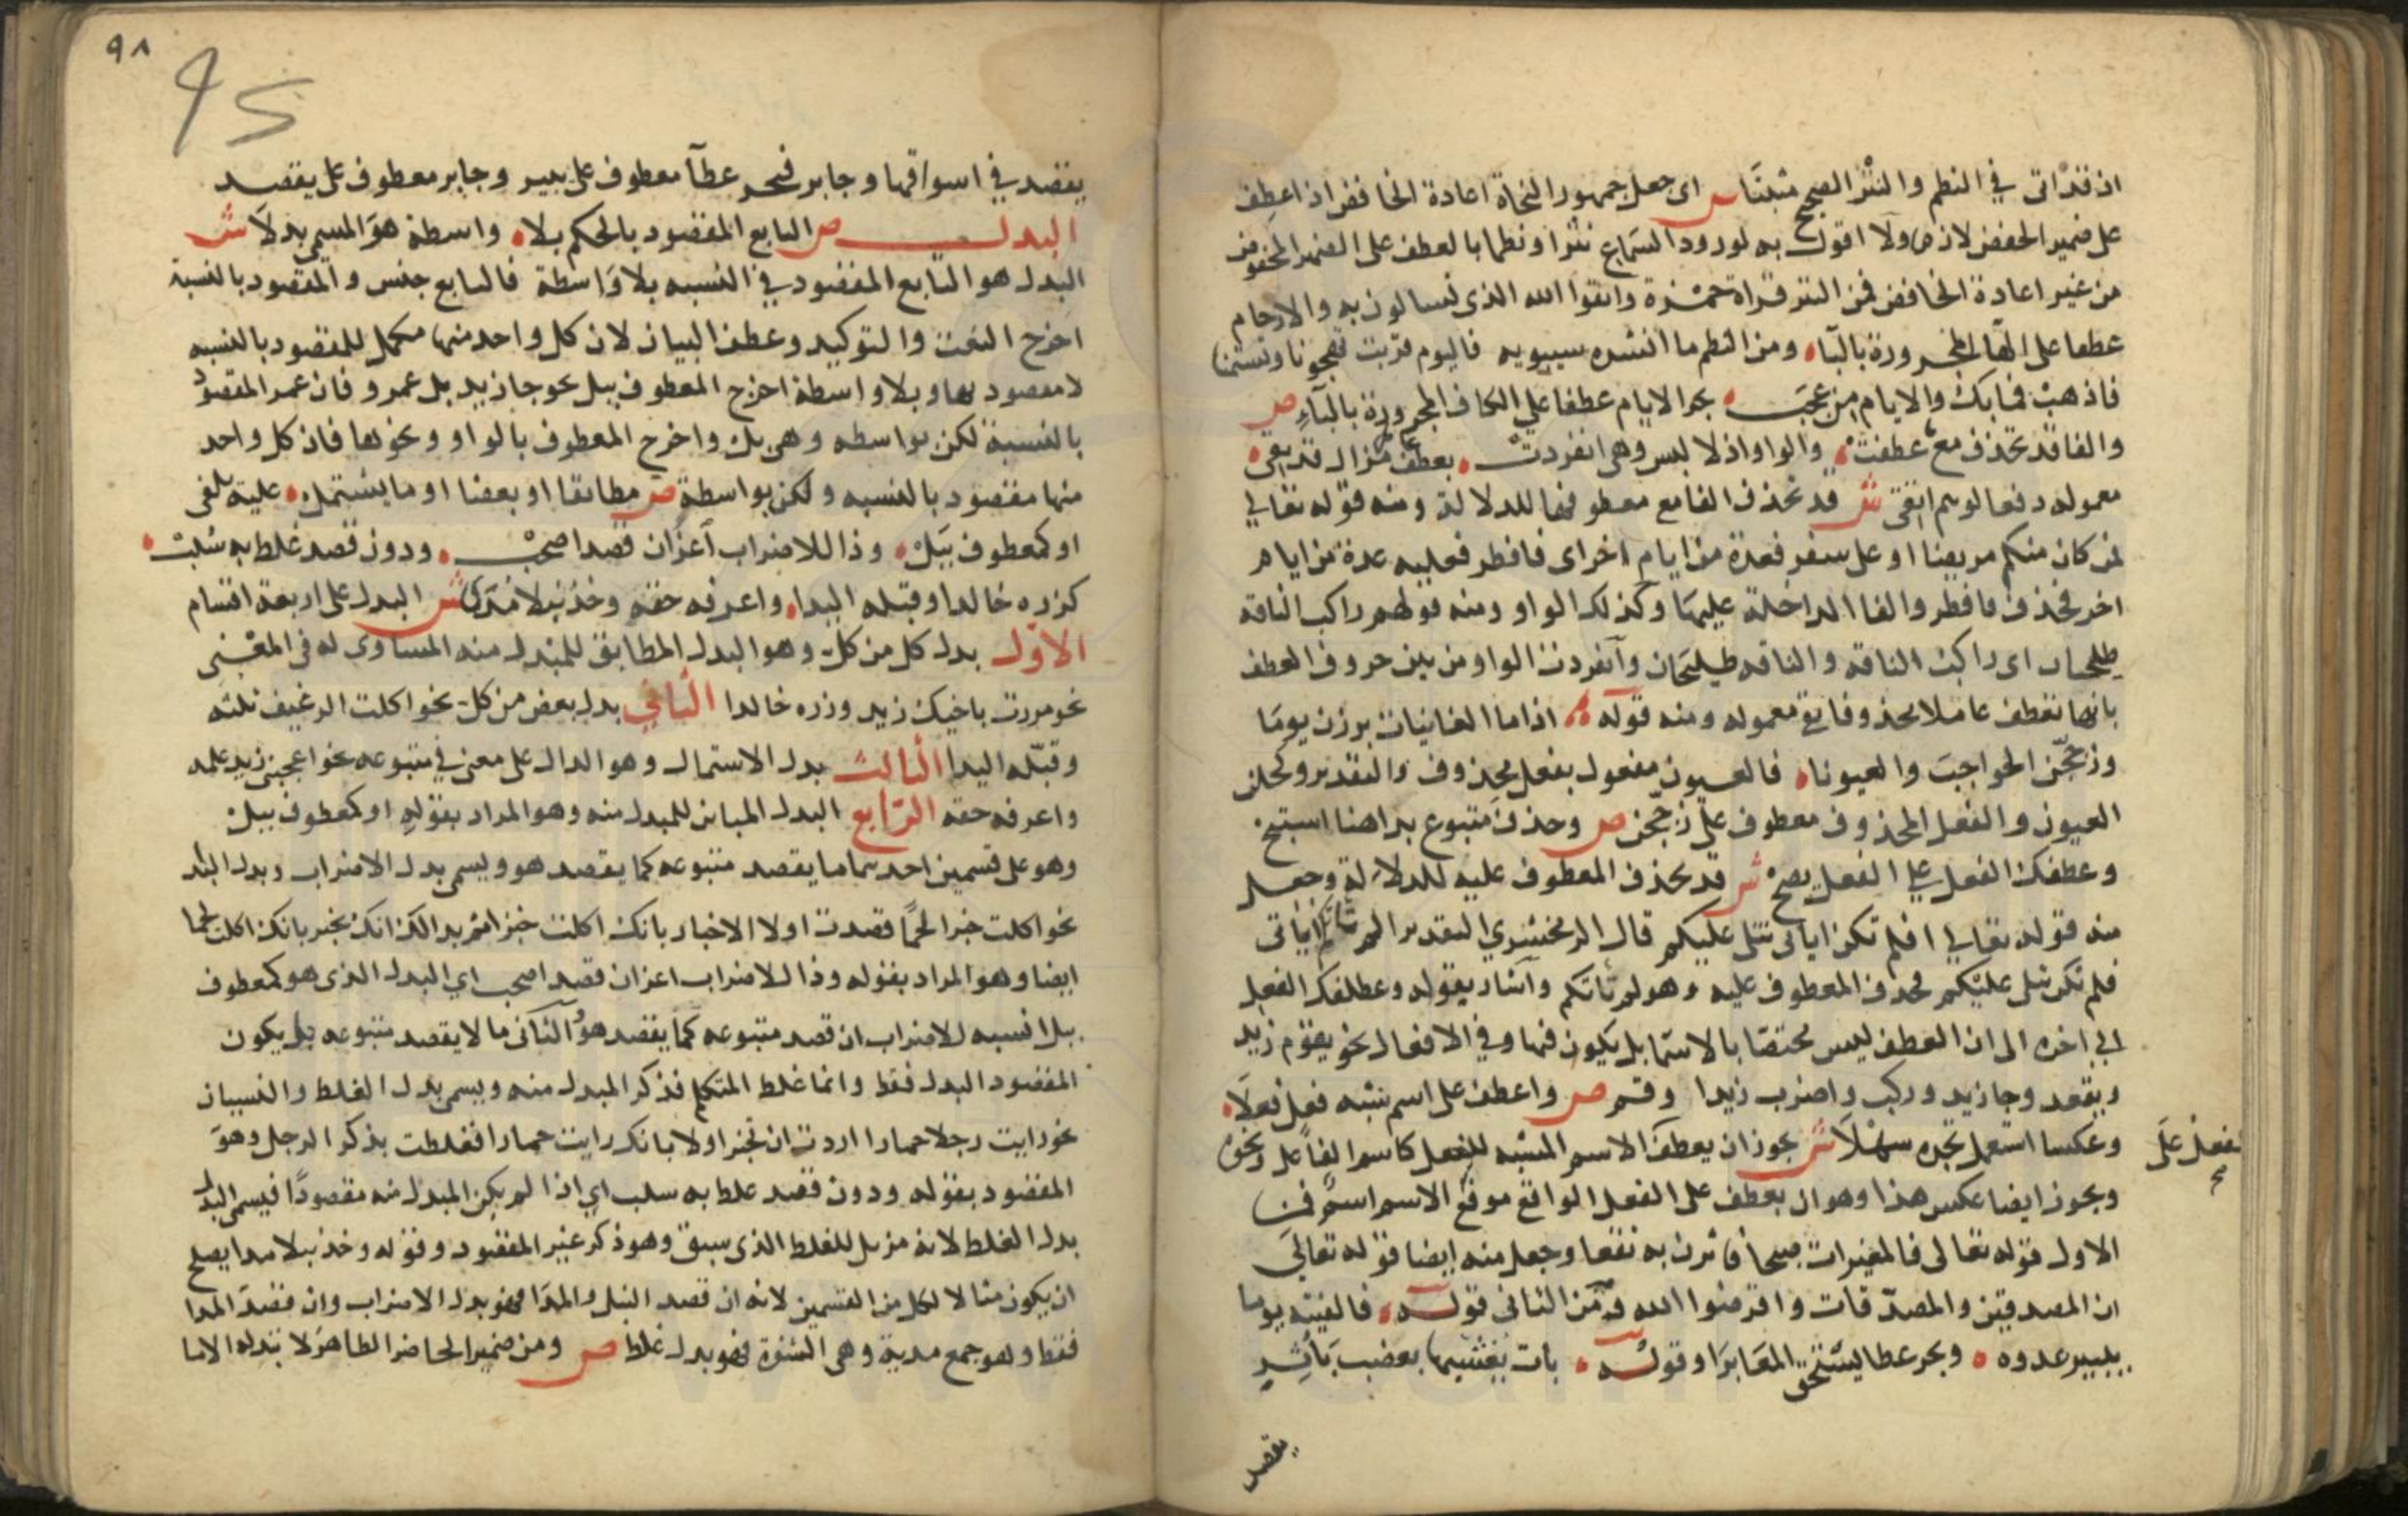 اذ قد اتى في النظم والنثر الصحيح مثبتا ش اى جعل جمهور النحاة اعادة الخافض اذا عطف
على ضمير الخفض لازما ولا اقول به لورود السماع نثرا ونظما بالعطف على الضمير المخفوض
من غير اعادة الخافض فمن النثر قراة حمزة واتقوا الله الذى تسالون به والارحام
عطفا على الها المجرورة بالباء ومن النظم ما انشده سيبويه فاليوم قربت تهجونا وتشتمنا
فاذهب فما بك والايام من عجب بجر الايام عطفا على الكاف المجرورة بالباء ص
والفا قد تحذف مع ما عطفت والواو اذ لا لبس وهى انفردت بعطف عامل مزال قد بقى
معموله دفعا لوهم اتقى ش قد تحذف الفا مع معطوفها للدلالة ومنه قوله تعالى
فمن كان منكم مريضا او على سفر فعدة من ايام اخر اى فافطر فعليه عدة من ايام
اخر فحذف فافطر والفا الداخلة عليها وكذلك الواو ومنه قولهم راكب الناقة
طليحان اى راكب الناقه والناقه طليحان وانفردت الواو من بين حروف العطف
بانها تعطف عاملا محذوفا بقى معموله ومنه قوله اذا ما الغانيات برزن يوما
وزججن الحواجب والعيونا فالعيون مفعول بفعل محذوف والتقدير وكحلن
العيون والفعل المحذوف معطوف على زججن ص وحذف متبوع بدا هنا استبح
وعطفك الفعل على الفعل يصح ش قد يحذف المعطوف عليه للدلالة وجعل
منه قوله تعالى افلم تكن اياتى تتلى عليكم قال الزمخشري التقدير الم تاتكم اياتى
فلم تكن تتلى عليكم فحذف المعطوف عليه وهو لم تاتكم واشار بقوله وعطفك الفعل
الى اخره الى ان العطف ليس مختصا بالاسما بل يكون فيها وفي الافعال نحو يقوم زيد
ويقعد وجا زيد وركب واضرب زيدا وقم ص واعطف على اسم شبه فعل فعلا
وعكسا استعمل تجده سهلا ش يجوز ان يعطف الاسم المشبه للفعل كاسم الفاعل ونحوه
الفعل على
ويجوز ايضا عكس هذا وهو ان يعطف على الفعل الواقع موقع الاسم اسم فمن
الاول قوله تعالى فالمغيرات صبحا فاثرن به نقعا وجعل منه ايضا قوله تعالى
ان المصدقين والمصدقات واقرضوا الله ومن الثانى قوله فالفيته يوما
يبير عدوه وبحر عطا يستحق المعابرا وقوله بات يغشيها بعضب باتر
يقصد
٩٨
95
يقصد في اسواقها وجاير فبحر عطآ معطوف على يبير وجاير معطوف على يقصد
البدل ص التابع المقصود بالحكم بلا واسطة هو المسمى بدلا ش
البدل هو التابع المقصود في النسبه بلا واسطة فالتابع جنس والمقصود بالنسبة
اخرج النعت والتوكيد وعطف البيان لان كل واحد منها مكمل للمقصود بالنسبه
لا مقصود بها وبلا واسطة اخرج المعطوف ببل نحو جا زيد بل عمرو فان عمر المقصود
بالنسبة لكن بواسطه وهى بل واخرج المعطوف بالواو ونحوها فان كل واحد
منها مقصود بالنسبه ولكن بواسطة ص مطابقا او بعضا او ما يشتمل عليه يلفى
او كمعطوف ببل وذا للاضراب اعز ان قصدا صحب ودون قصد غلط به سلب
كزره خالدا وقبله اليدا واعرفه حقه وخذ نبلا مدى ش البدل على اربعة اقسام
الاول بدل كل من كل وهو البدل المطابق للمبدل منه المساوى له في المعنى
نحو مررت باخيك زيد وزره خالدا الثاني بدل بعض من كل نحو اكلت الرغيف ثلثه
وقبله اليدا الثالث بدل الاشتمال وهو الدال على معنى في متبوعه نحو اعجبنى زيد علمه
واعرفه حقه الرابع البدل المباين للمبدل منه وهو المراد بقوله او كمعطوف ببل
وهو على قسمين احدهما ما يقصد متبوعه كما يقصد هو ويسمى بدل الاضراب وبدل البدا
نحو اكلت خبزا لحما قصدت اولا الاخبار بانك اكلت خبزا ثم بدا لك انك تخبر بانك اكلت لحما
ايضا وهو المراد بقوله وذا للاضراب اعز ان قصدا صحب اي البدل الذى هو كمعطوف
ببل انسبه للاضراب ان قصد متبوعه كما يقصد هو الثانى ما لا يقصد متبوعه بل يكون
المقصود البدل فقط وانما غلط المتكلم فذكر المبدل منه ويسمى بدل الغلط والنسيان
نحو رايت رجلا حمارا اردت ان تخبر اولا بانك رايت حمارا فغلطت بذكر الرجل وهو
المقصود بقوله ودون قصد غلط به سلب اي اذا لم يكن المبدل منه مقصودا فيسمى البدل
بدل الغلط لانه مزيل للغلط الذى سبق وهو ذكر غير المقصود وقوله وخذ نبلا مدا يصلح
ان يكون مثالا لكل من القسمين لانه ان قصد النبل والمدا فهو بدل الاضراب وان قصد المدا
فقط وهو جمع مدية وهى الشفرة فهو بدل غلط ص ومن ضمير الحاضر الظاهر لا تبدله الا ما